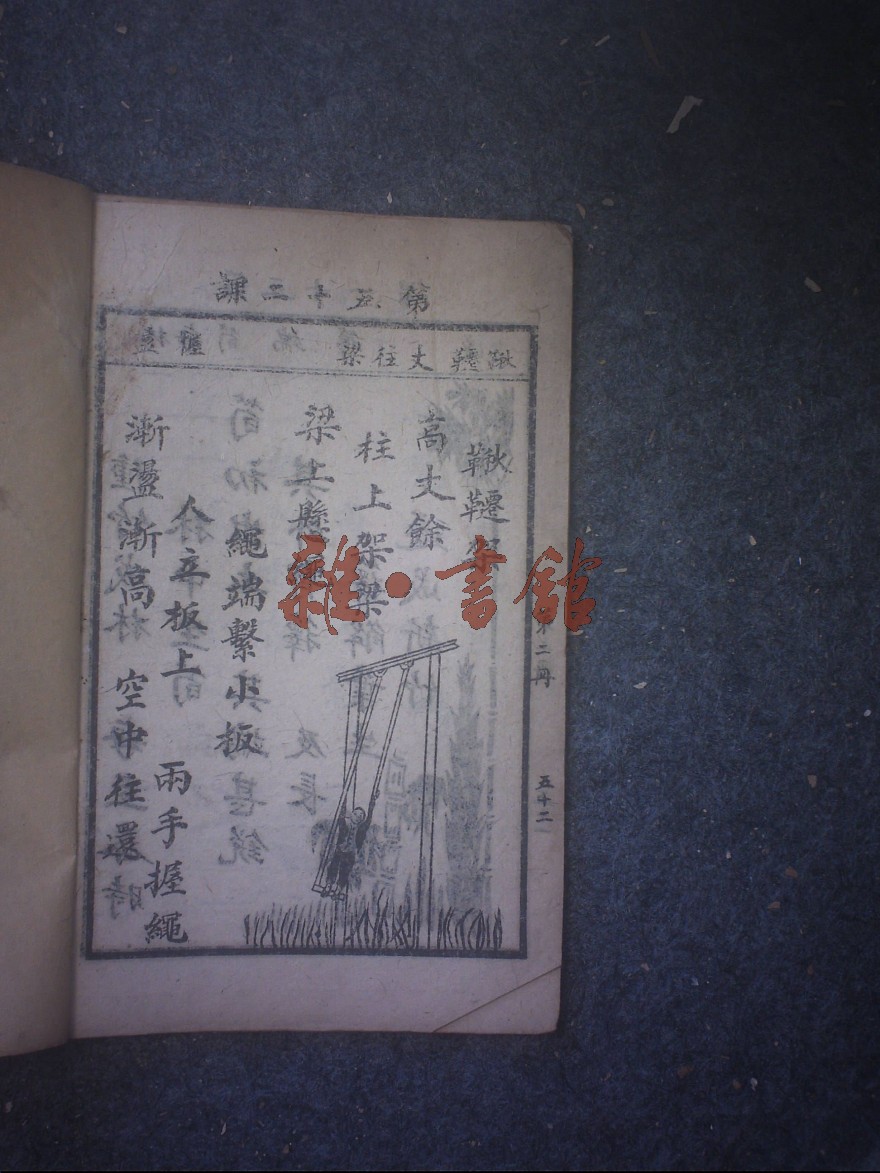 第五十二課
鞦韆丈柱梁
握盪
鞦韆架
高丈餘
柱上架梁
梁上懸繩
繩端繫板
人立板上
兩手握繩
漸盪漸高
空中往還
第二冊
五十二
雜·書館